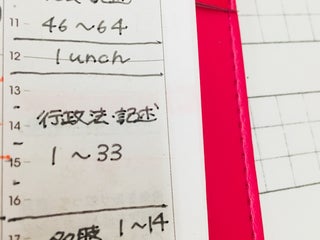 記述
11 46～64
12 lunch
13
14 行政法・記述
15 1～33
16
17 1～14